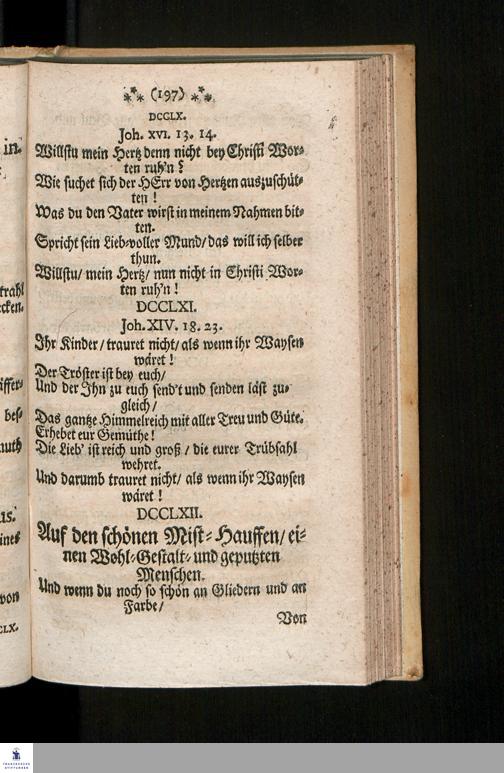 in.
trahl
ecken.
iffer-
bes-
muth
us.
ines
von
CLX.
(197)
DCCLX.
Joh. XVI. 13. 14.
Willstu mein Hertz denn nicht bey Christi Wor-
ten ruh'n?
Wie suchet sich der HErr von Hertzen auszuschüt-
ten!
Was du den Vater wirst in meinem Nahmen bit-
ten.
Spricht sein Lieb-voller Mund/ das will ich selber
thun.
Willstu/ mein Hertz/ nun nicht in Christi Wor-
ten ruh'n!
DCCLXI.
Joh. XIV. 18. 23.
Ihr Kinder/ trauret nicht/ als wenn ihr Waysen
wäret!
Der Tröster ist bey euch/
Und der Ihn zu euch send't und senden läst zu-
gleich/
Das gantze Himmelreich mit aller Treu und Güte.
Erhebet eur Gemüthe!
Die Lieb' ist reich und groß/ die eurer Trübsahl
wehret.
Und darumb trauret nicht/ als wenn ihr Waysen
wäret!
DCCLXII.
Auf den schönen Mist-Hauffen/ ei-
nen Wohl-Gestalt- und geputzten
Menschen.
Und wenn du noch so schön an Gliedern und an
Farbe/
Von
FRANCKESCHE
STIFTUNGEN